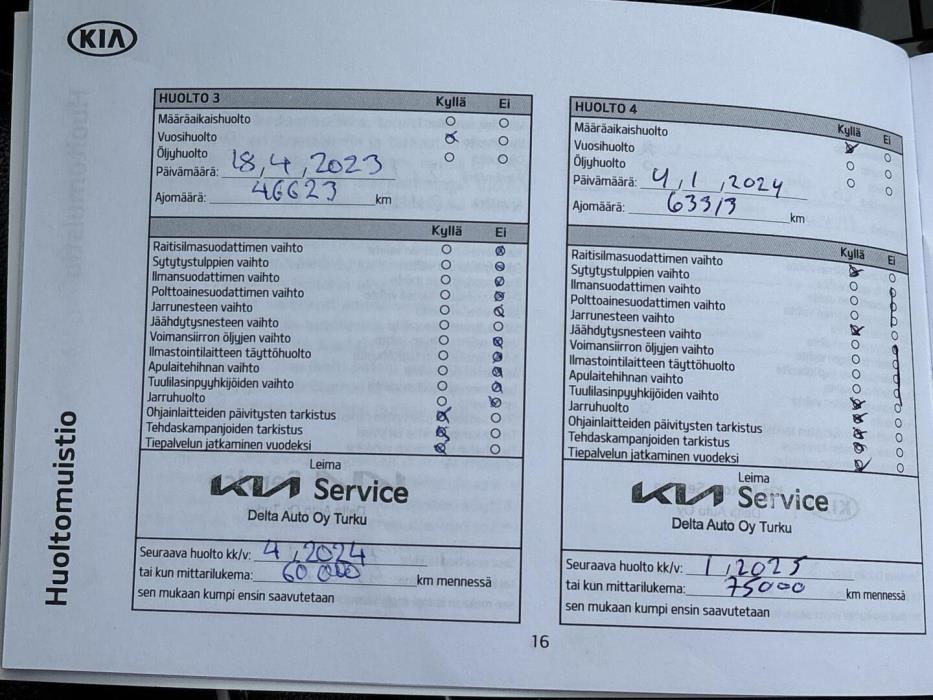 KIA
HUOLTO 3 Kyllä Ei
Määräaikaishuolto
Vuosihuolto
Öljyhuolto
Päivämäärä: 18,4,2023
Ajomäärä: 46623 km
Kyllä Ei
Raitisilmasuodattimen vaihto
Sytytystulppien vaihto
Ilmansuodattimen vaihto
Polttoainesuodattimen vaihto
Jarrunesteen vaihto
Jäähdytysnesteen vaihto
Voimansiirron öljyjen vaihto
Ilmastointilaitteen täyttöhuolto
Apulaitehihnan vaihto
Tuulilasinpyyhkijöiden vaihto
Jarruhuolto
Ohjainlaitteiden päivitysten tarkistus
Tehdaskampanjoiden tarkistus
Tiepalvelun jatkaminen vuodeksi
Leima
KIA Service
Delta Auto Oy Turku
Seuraava huolto kk/v: 4,2024
tai kun mittarilukema: 60 000 km mennessä
sen mukaan kumpi ensin saavutetaan
HUOLTO 4 Kyllä Ei
Määräaikaishuolto
Vuosihuolto
Öljyhuolto
Päivämäärä: 4,1,2024
Ajomäärä: 63313 km
Kyllä Ei
Raitisilmasuodattimen vaihto
Sytytystulppien vaihto
Ilmansuodattimen vaihto
Polttoainesuodattimen vaihto
Jarrunesteen vaihto
Jäähdytysnesteen vaihto
Voimansiirron öljyjen vaihto
Ilmastointilaitteen täyttöhuolto
Apulaitehihnan vaihto
Tuulilasinpyyhkijöiden vaihto
Jarruhuolto
Ohjainlaitteiden päivitysten tarkistus
Tehdaskampanjoiden tarkistus
Tiepalvelun jatkaminen vuodeksi
Leima
KIA Service
Delta Auto Oy Turku
Seuraava huolto kk/v: 1,2025
tai kun mittarilukema: 75000 km mennessä
sen mukaan kumpi ensin saavutetaan
Huoltomuistio
16